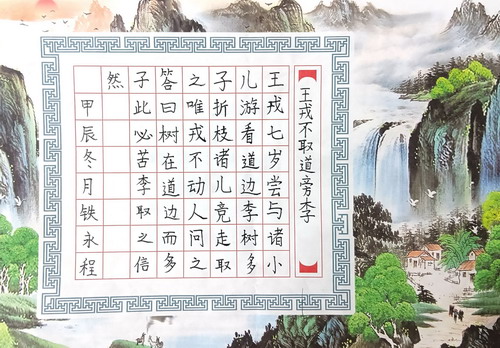 王戎不取道旁李
王戎七岁尝与诸小
儿游看道边李树多
子折枝诸儿竞走取
之唯戎不动人问之
答曰树在道边而多
子此必苦李取之信
然
甲辰冬月铁永程